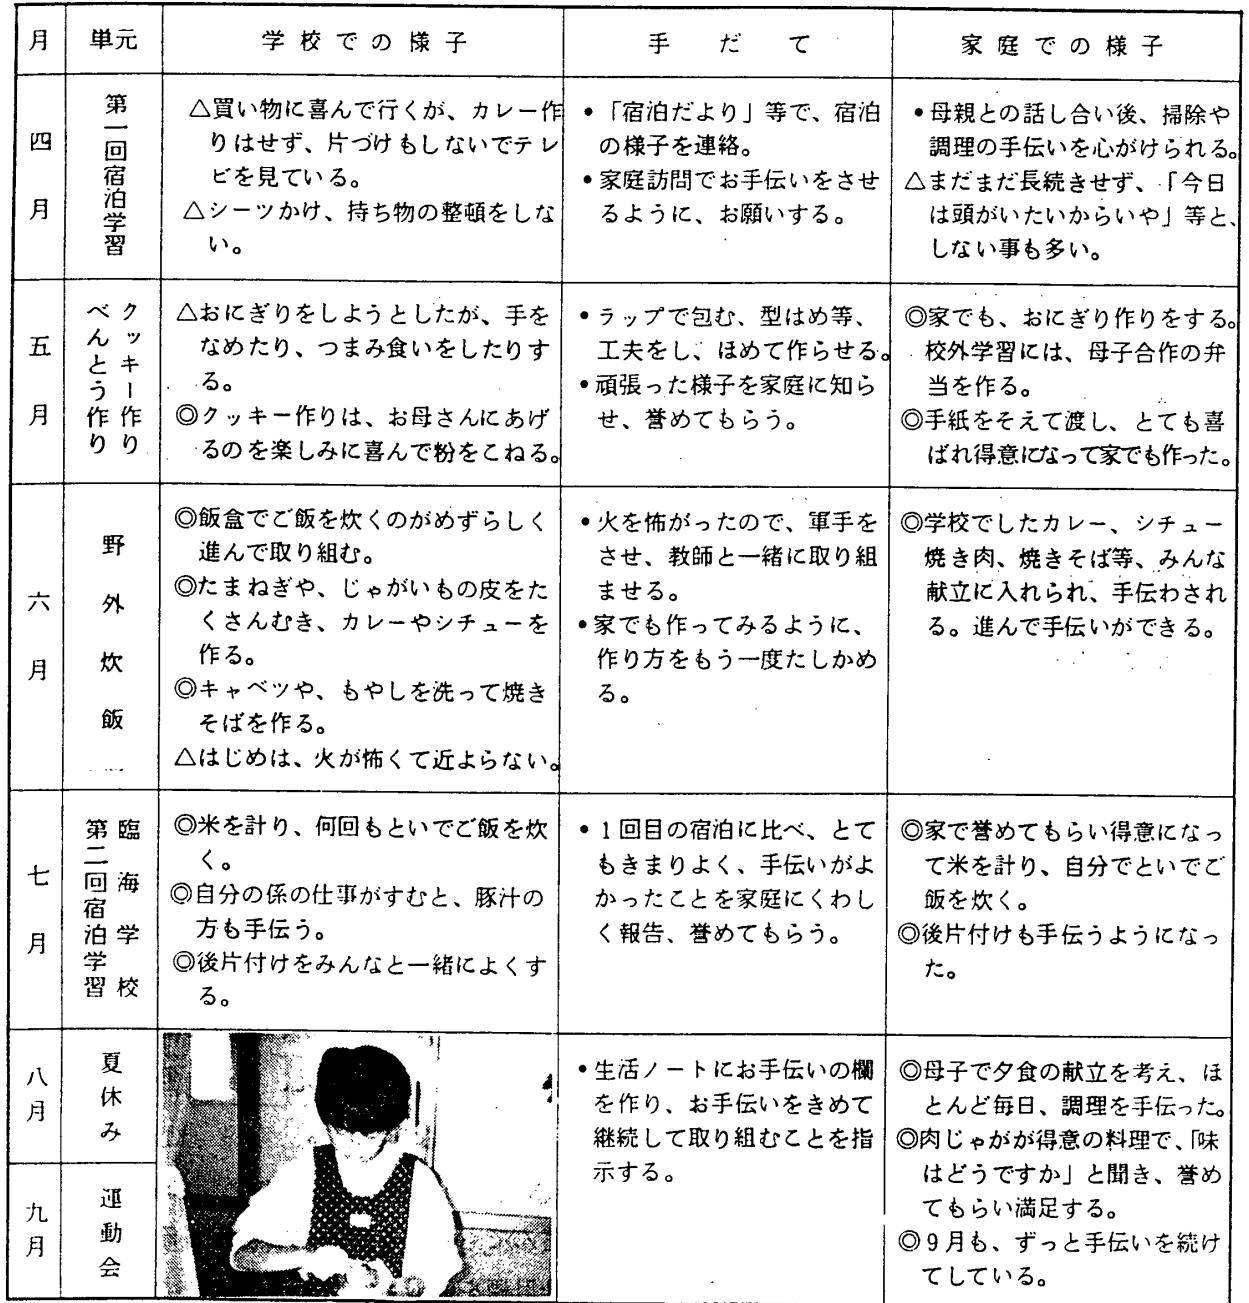 月 単元 学校での様子 手だて 家庭での様子
四月
第一回宿泊学習
△買い物に喜んで行くが、カレー作
りはせず、片づけもしないでテレ
ビを見ている。
△シーツかけ、持ち物の整頓をしな
い。
•「宿泊だより」等で、宿泊
の様子を連絡。
•家庭訪問でお手伝いをさせ
るように、お願いする。
•母親との話し合い後、掃除や
調理の手伝いを心がけられる。
△まだまだ長続きせず、「今日
は頭がいたいからいや」等と、
しない事も多い。
五月
クッキー作り
べんとう作り
△おにぎりをしようとしたが、手を
なめたり、つまみ食いをしたりす
る。
◎クッキー作りは、お母さんにあげ
るのを楽しみに喜んで粉をこねる。
•ラップで包む、型はめ等、
工夫をし、ほめて作らせる。
•頑張った様子を家庭に知ら
せ、誉めてもらう。
◎家でも、おにぎり作りをする。
校外学習には、母子合作の弁
当を作る。
◎手紙をそえて渡し、とても喜
ばれ得意になって家でも作った。
六月
野外炊飯
◎飯盒でご飯を炊くのがめずらしく
進んで取り組む。
◎たまねぎや、じゃがいもの皮をた
くさんむき、カレーやシチューを
作る。
◎キャベツや、もやしを洗って焼き
そばを作る。
△はじめは、火が怖くて近よらない。
•火を怖がったので、軍手を
させ、教師と一緒に取り組
ませる。
•家でも作ってみるように、
作り方をもう一度たしかめ
る。
◎学校でしたカレー、シチュー
焼き肉、焼きそば等、みんな
献立に入れられ、手伝わされ
る。進んで手伝いができる。
七月
臨海学校
第二回宿泊学習
◎米を計り、何回もといでご飯を炊
く。
◎自分の係の仕事がすむと、豚汁の
方も手伝う。
◎後片付けをみんなと一緒によくす
る。
•1回目の宿泊に比べ、とて
もきまりよく、手伝いがよ
かったことを家庭にくわし
く報告、誉めてもらう。
◎家で誉めてもらい得意になっ
て米を計り、自分でといでご
飯を炊く。
◎後片付けも手伝うようになっ
た。
八月
夏休み
九月
運動会
•生活ノートにお手伝いの欄
を作り、お手伝いをきめて
継続して取り組むことを指
示する。
◎母子で夕食の献立を考え、ほ
とんど毎日、調理を手伝った。
◎肉じゃがが得意の料理で、「味
はどうですか」と聞き、誉め
てもらい満足する。
◎9月も、ずっと手伝いを続け
てしている。